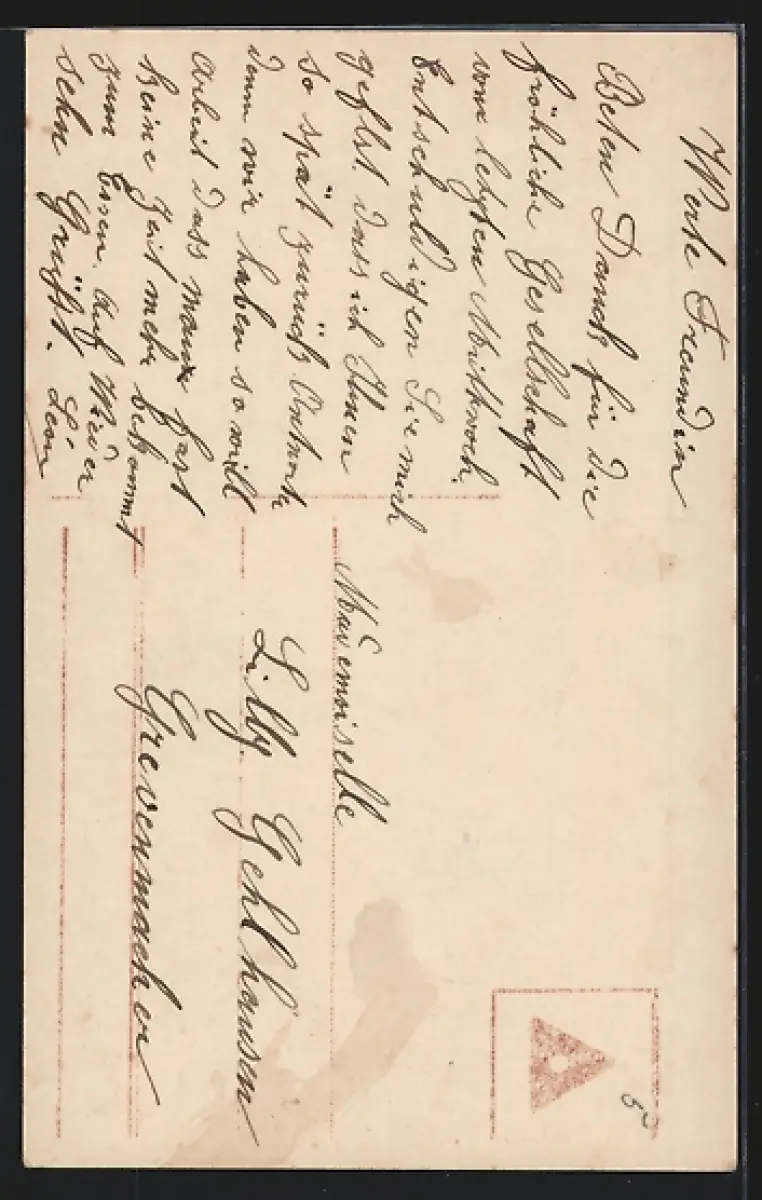 Werte Freundin
Besten Dank für die
fröhliche Gesellschaft
vom letzten Mittwoch.
Entschuldigen Sie mich
geflst. dass ich Ihnen
so spät zurück Antwort
denn wir haben so vill
Arbeit dass man fast
keine Zeit mehr bekommt
zum Essen. Auf Wieder
sehn Grüsst. Léon
Mademoiselle
Lilly Gehlhausen
Grevenmacher
5